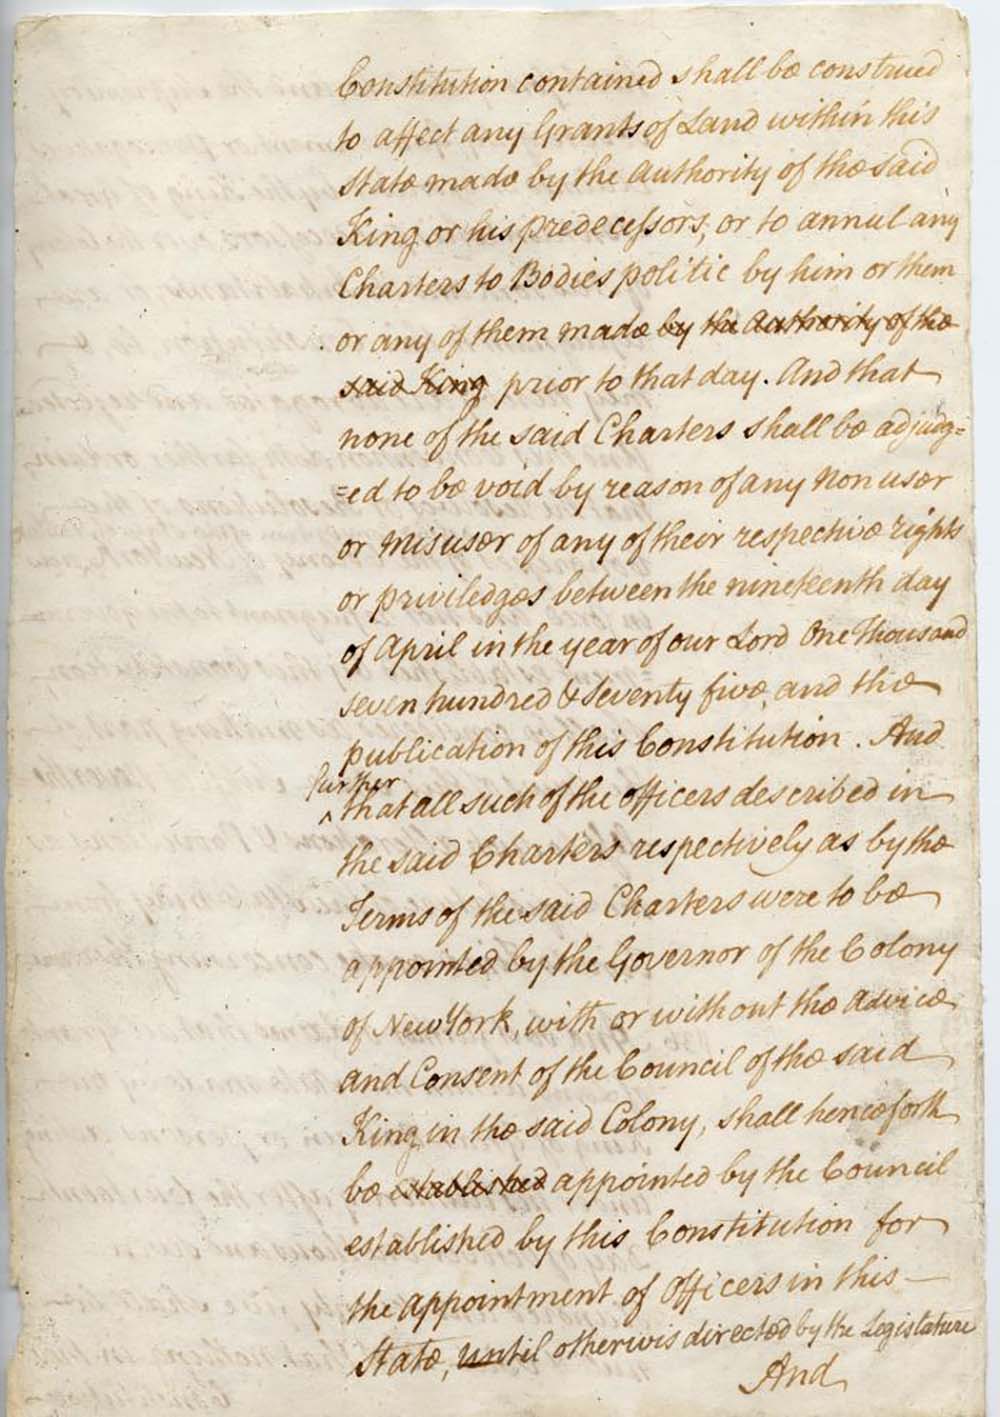 Constitution contained shall be construed
to affect any Grants of Land within this
State made by the Authority of the said
King or his predecessors, or to annul any
Charters to Bodies politic by him or them
or any of them made by the Authority of the
said King prior to that day. And that
none of the said Charters shall be adjudg=
=ed to be void by reason of any Non user
or Misuser of any of their respective rights
or priviledges between the nineteenth day
of April in the year of our Lord One Thousand
seven hundred & Seventy five, and the
publication of this Constitution. And
further
^ that all such of the officers described in
the said Charters respectively as by the
Terms of the said Charters were to be
appointed by the Governor of the Colony
of New York, with or without the Advice
and Consent of the Council of the said
King in the said Colony, shall henceforth
be established appointed by the Council
established by this Constitution for
the Appointment of Officers in this —
State, until otherwis directed by the Legislature
And